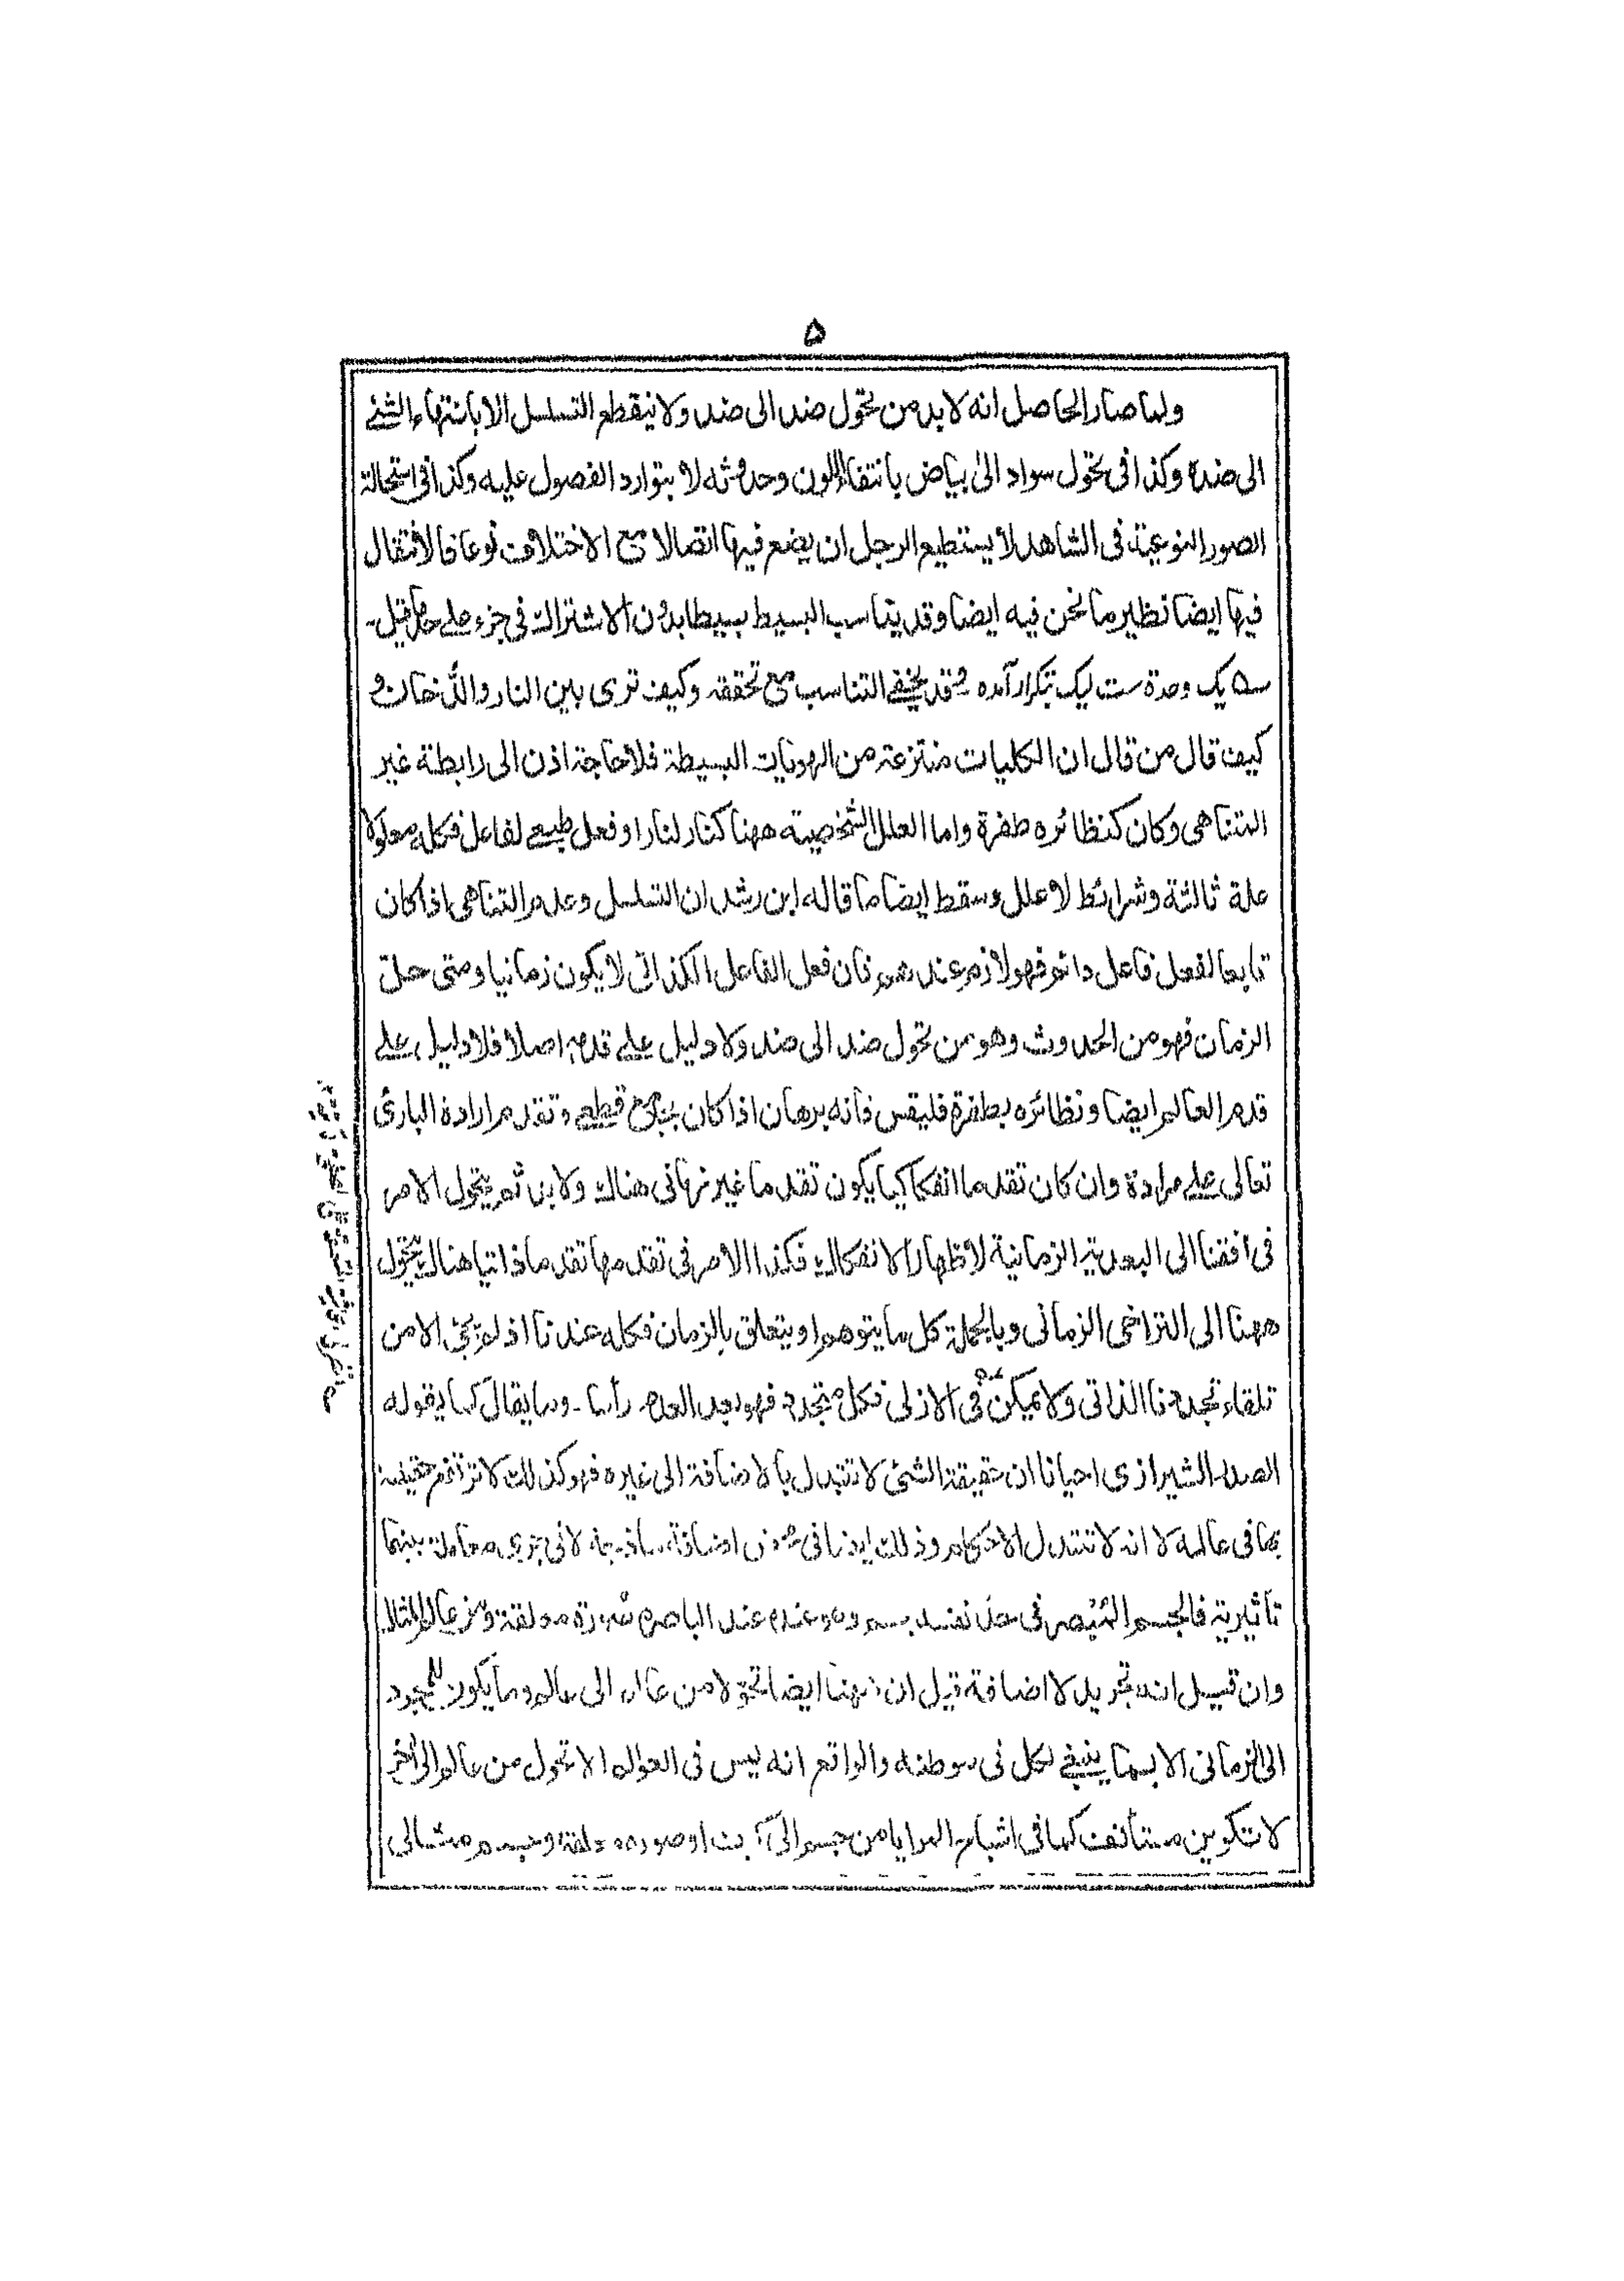 ۵
ولما صار الحاصل انه لابد من تحول ضد الى ضد ولا ينقطع التسلسل الا بانتهاء الشئ
الى ضده وكذا فى تحول سواد الىٰ بياض بانتفاء اللون وحدوثه لا بتوارد الفصول عليه وكذا فى استحالة
الصور النوعية فى الشاهد لا يستطيع الرجل ان يضع فيها اتصالا مع الاختلاف نوعا فالانتقال
فيها ايضا نظير ما نحن فيه ايضا وقد يتناسب البسيط بسيطا بدون الاشتراك فى جزء على حد ما قيل۔
يک وحدة ست ليک بتکرار آمده وقد يخفى التناسب مع تحققه وكيف ترى بين النار والدخان و
كيف قال من قال ان الكليات منتزعة من الهويات البسيطة فلا حاجة اذن الى رابطة غير
التناهى وكان كنظائره طفرة واما العلل الشخصية ههنا كنار لنار او فعل طبيعى لفاعل فكله معلولا
علة ثالثة وشرائط لا علل وسقط ايضا ما قاله ابن رشد ان التسلسل وعدم التناهى اذا كان
تابعا لفعل فاعل دائم فهو لازم عندهم فان فعل الفاعل الكذائى لا يكون زمانيا ومتى حلق
الزمان فهو من الحدوث وهو من تحول ضد الى ضد ولا دليل على قدمه اصلا فلا دليل على
قدم العالم ايضا ونظائره بطفرة فليقس فانه برهان اذا كان بجامع قطعى وتقدم ارادة البارئ
تعالى على مراده وان كان تقدما انفكاكيا يكون تقدما غير زمانى هناك ولابد ثم يتحول الامر
فى افقنا الى البعدية الزمانية لاظهار الانفكاك فكذا الامر فى تقدمها تقدما ذاتيا هناك يتحول
ههنا الى التراخى الزمانى وبالجملة كل ما يتوهم او يتعلق بالزمان فكله عندنا اذ لم يجئ الا من
تلقاء تجددنا الذاتى ولا يمكن فى الازلى فكل متجدد فهو بعد العدم رأسا۔ وما يقال كما يقوله
الصدر الشيرازى احيانا ان حقيقة الشئ لا تتبدل بالاضافة الى غيره فهو كذلك لا تزاحم حقيقة
بما فى عالمه لا انه لا تتبدل الاحكام وذلك ايضا فى اضافة ساذجة لا فى معاملة بينهما
تاثيرية فالجسم المبصر فى حد نفسه جسم وهو عند الباصرة صورة معلقة ومن عالم المثال
وان قيل انه تجريد لا اضافة قيل ان ههنا ايضا تحولا من عالم الى عالم وما يكون للمجرد
الى الزمانى الا بما ينبغى لكل فى موطنه والواقع انه ليس فى العوالم الا تحول من عالم الى آخر
لا تكوين مستأنف كما فى اشباح المرايا من جسم الى او صورة معلقة وجسم مثالى